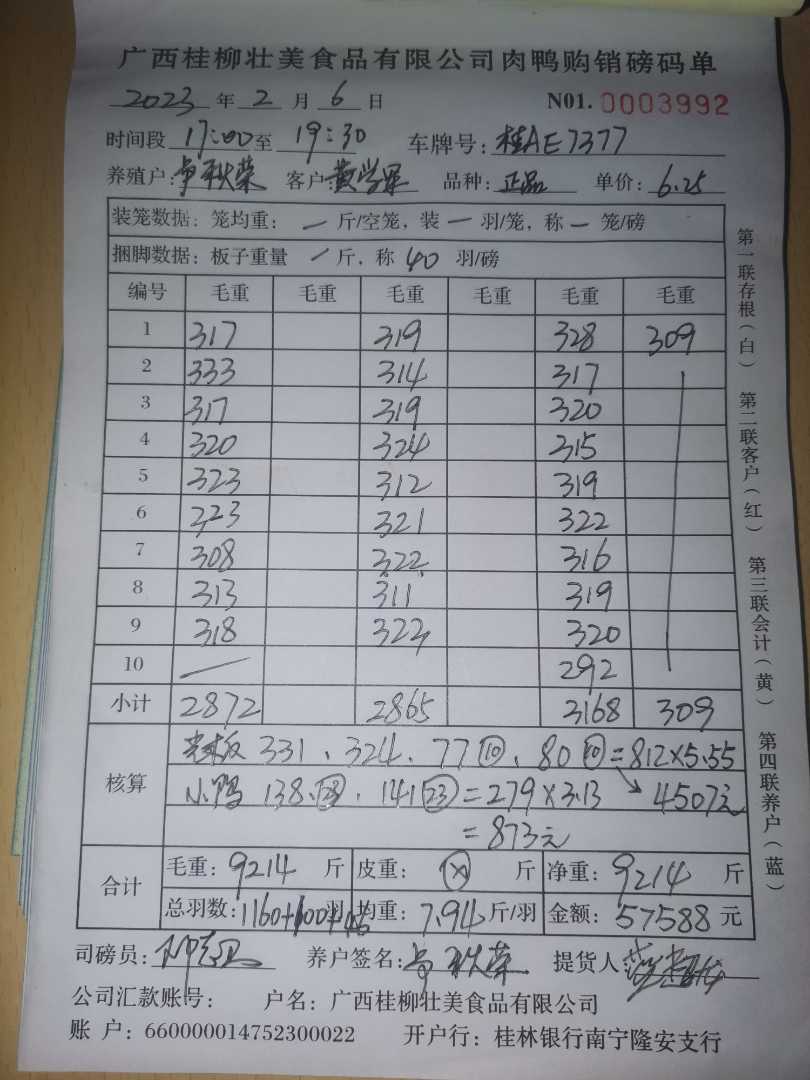 广西桂柳壮美食品有限公司肉鸭购销磅码单
2023 年 2 月 6 日 N01. 0003992
时间段 17:00 至 19:30 车牌号: 桂AE7377
养殖户: 秋荣 客户: 黄学军 品种: 正品 单价: 6.25
装笼数据: 笼均重: 一 斤/空笼, 装 一 羽/笼, 称 一 笼/磅
捆脚数据: 板子重量 一 斤, 称 40 羽/磅
编号 毛重 毛重 毛重 毛重 毛重 毛重
1 317 319 328 309
2 333 314 317
3 317 319 320
4 320 324 315
5 323 312 319
6 323 321 322
7 308 322 316
8 313 311 319
9 318 322 320
10 — 292
小计 2872 2865 3168 309
核算 331、324、77⑩、80⑩=812×5.55
小鸭 138.㉓、141㉓=279×3.13 4507元
=873元
合计 毛重: 9214 斤 皮重: ⓧ 斤 净重: 9214 斤
总羽数: 1160+100+46 羽 均重: 7.94 斤/羽 金额: 57588 元
司磅员: 养户签名: 秋荣 提货人:
公司汇款账号: 户名: 广西桂柳壮美食品有限公司
账 户: 660000014752300022 开户行: 桂林银行南宁隆安支行
第一联存根(白) 第二联客户(红) 第三联会计(黄) 第四联养户(蓝)